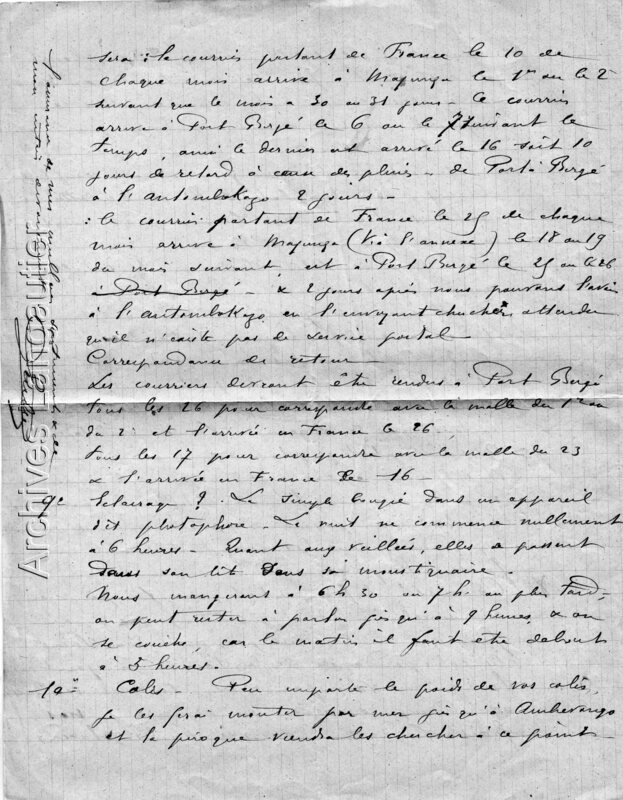 sera : le courrier partant de France le 10 de
chaque mois arrive à Majunga le 1er ou le 2
suivant que le mois a 30 ou 31 jours - le courrier
arrive à Port Bergé le 6 ou le 7 suivant le
temps, ainsi le dernier est arrivé le 16 soit 10
jours de retard à cause des pluies - de Port Bergé
à l'Antombokago 2 jours -
: le courrier partant de France le 25 de chaque
mois arrive à Majunga (Via l'annexe) le 18 ou 19
du mois suivant, est à Port Bergé le 25 ou le 26
à Port Bergé - & 2 jours après nous pouvons l'avoir
à l'Antombokago en l'envoyant chercher attendu
qu'il n'existe pas de service postal -
Correspondance de retour -
Les courriers devront être rendus à Port Bergé
tous les 26 pour correspondre avec la malle du 1er ou
du 2 et l'arrivée en France le 26
tous les 17 pour correspondre avec la malle du 23
& l'arrivée en France le 16 -
9° Eclairage ? - La simple bougie dans un appareil
dit photophore - La nuit ne commence nullement
à 6 heures - Quant aux veillées, elles se passent
dans son lit sous sa moustiquaire.
Nous mangerons à 6 h 30 ou 7 h. au plus tard,
on peut rester à parler jusqu'à 9 heures, & on
se couche, car le matin il faut être debout
à 5 heures.
10° Colis - Peu importe le poids de vos colis,
je les ferai monter par mer jusqu'à Ambevango
et la pirogue viendra les chercher à ce point -
de mes
mon
Archives